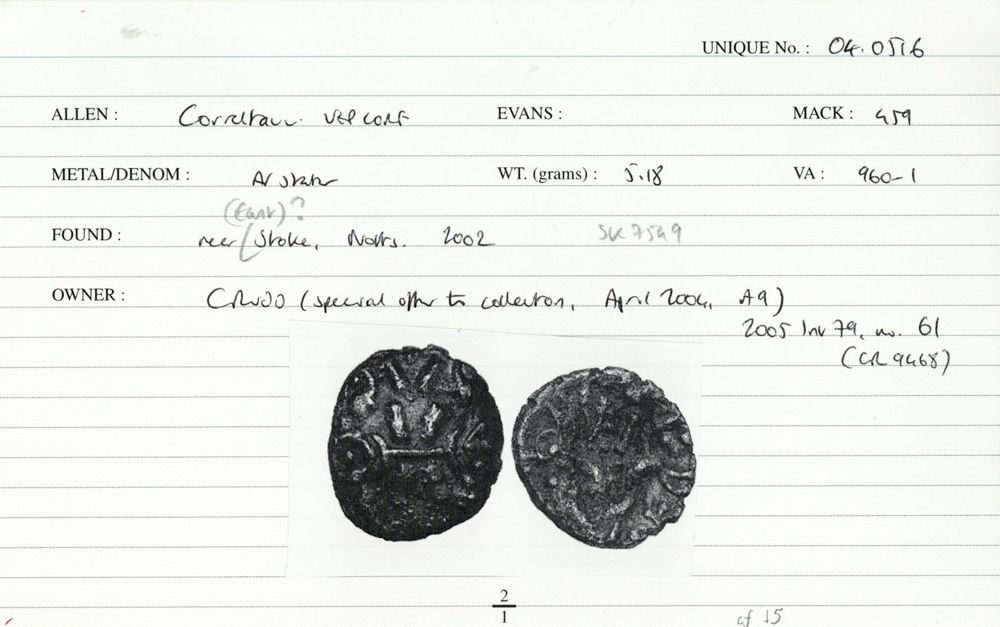 UNIQUE No. : 04.0516
ALLEN : Corieltauv. VEP CORF EVANS : MACK : 459
METAL/DENOM : AV stater WT. (grams) : 5.18 VA : 960-1
(East)?
FOUND : near Stoke, Notts. 2002 SK 7549
OWNER : (special offer to collection, April 2004, A9)
2005 79, no. 61
(CR 9468)
2
1
cf 15